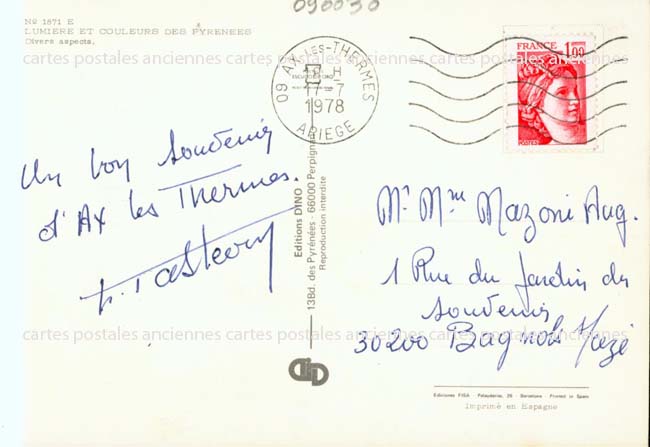 090030
Nº 1871 E
LUMIERE ET COULEURS DES PYRENEES
Divers aspects.
cartes postales anciennes cartes postales anciennes cartes postales anciennes
09 AX-LES-THERMES
18 H
17-7
1978
ARIEGE
FRANCE
1,00
POSTES
Un bon souvenir
d'Ax les Thermes.
Mr Mme Mazoni Aug.
1 Rue du Jardin du
Souvenir
30200 Bagnols s/ Cèze
Editions DINO
13Bd. des Pyrénées - 66000 Perpignan
Reproduction interdite
cartes postales anciennes cartes postales anciennes cartes postales anciennes
Ediciones FISA - Palaudarias, 26 - Barcelona Printed in Spain
Imprimé en Espagne